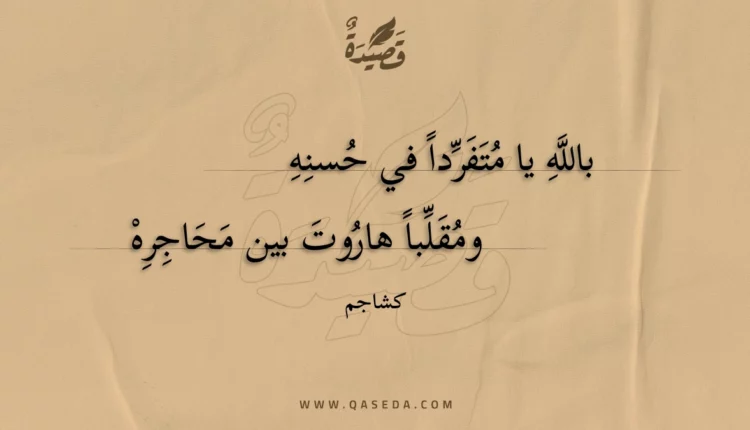 قَصِيْدَةٌ
باللَّهِ يا مُتَفَرِّداً في حُسنِهِ
ومُقَلِّباً هارُوتَ بين مَحَاجِرِهْ
كشاجم
WWW.QASEDA.COM